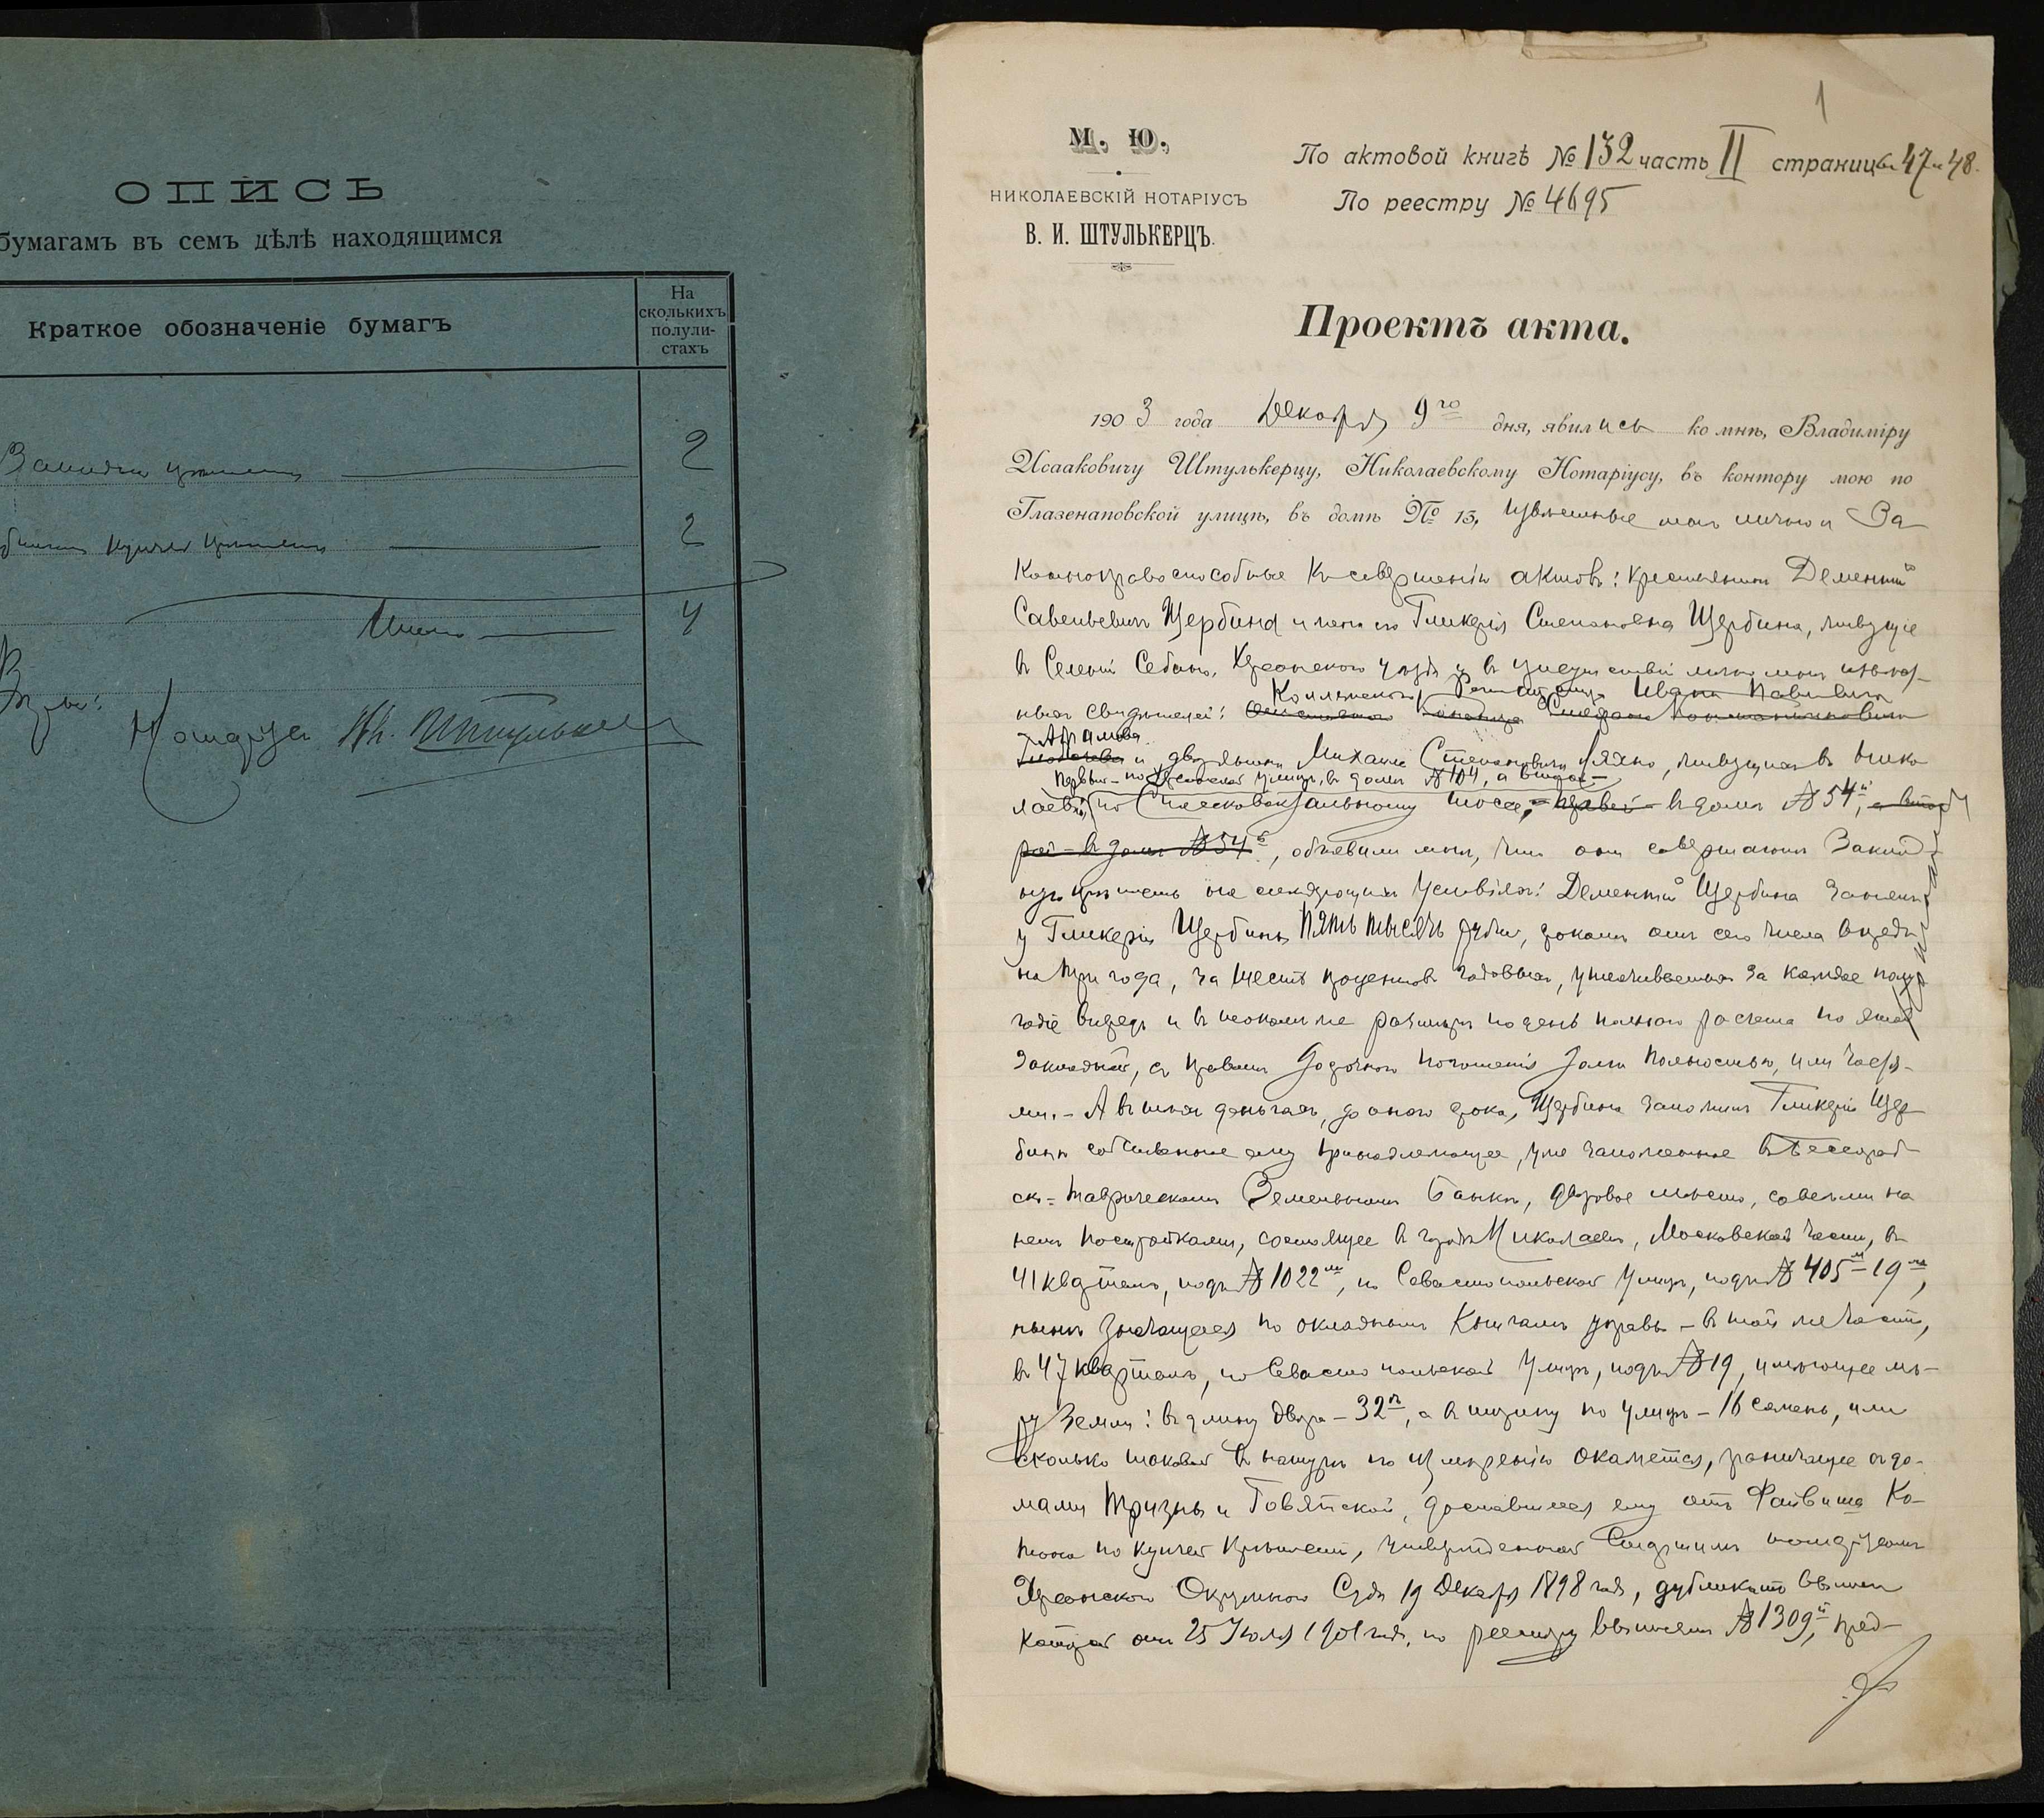 ОПИСЬ
бумагамъ въ семъ дѣлѣ находящимся
Краткое обозначеніе бумагъ
На
сколькихъ
полули-
стахъ
2
2
4
1
М. Ю.
НИКОЛАЕВСКІЙ НОТАРІУСЪ
В. И. ШТУЛЬКЕРЦЪ.
По актовой книгѣ № 132 часть II страницы 47 и 48.
По реестру № 4695
Проектъ акта.
1903 года Декабря 9го дня, явились ко мнѣ, Владиміру
Исааковичу Штулькерцу, Николаевскому Нотаріусу, въ контору мою по
Глазенаповской улицѣ, въ домѣ № 13, извѣстные мнѣ лично и За
коннoправоспособные къ совершенію актовъ: крестьянинъ Дементій
Савельевичъ Щербина и жена его Гликерія Степановна Щербина, живущіе
въ Селеніи Себино, Херсонскаго уѣзда и въ присутствіи лично мнѣ извѣст-
Иванъ Павловичъ
ныхъ свидѣтелей:
и дворянина Михаила Степановича Ляхно, живущихъ въ Нико
Первый - по Херсонской улицѣ, въ домѣ № 104, а второй -
лаевѣ, по Спасковокзальному шоссе, - первый - въ домѣ № 54й, а вто
рой - въ домѣ № 54й, объявили мнѣ, что они совершаютъ Заклад
ную крѣпость на слѣдующихъ условіяхъ: Дементій Щербина занялъ
у Гликеріи Щербины пять тысячъ рублей, срокомъ отъ сего числа впредь
на три года, за шесть процентовъ годовыхъ, уплачиваемыхъ за каждое полу
годіе впередъ и въ такомъ же размѣрѣ по день полнаго расчета по этой
Закладной, съ правомъ досрочнаго погашенія займа полностью, или частя-
ми. - А въ тѣхъ деньгахъ, до онаго срока, Щербина заложилъ Гликеріи Щер-
бинѣ собственное ему принадлежащее, уже заложенное въ Бессараб-
ско-Таврическомъ Земельномъ Банкѣ, дворовое мѣсто, со всѣми на
немъ постройками, состоящее въ городѣ Николаевѣ, Московской части, въ
41 кварталѣ, подъ № 1022мъ, по Севастопольской улицѣ, подъ № 405мъ-19мъ,
нынѣ значащееся по окладнымъ книгамъ управы - въ той же части,
въ 47 кварталѣ, по Севастопольской улицѣ, подъ № 19, имѣющее мѣ-
ру земли: въ длину двора - 32, а въ ширину по улицѣ - 16 сажень, или
сколько таковой въ натурѣ по измѣренію окажется, граничащее съ до-
мами Тризны и Говятской, доставшееся ему отъ Файвиша Ко-
гана по купчей крѣпости, утвержденной Старшимъ нотаріусомъ
Херсонскаго Окружнаго Суда 19 Декабря 1898 года, дубликатъ выписи
которой отъ 25 Іюля 1901 года, по реестру выписей № 1309й, пред-